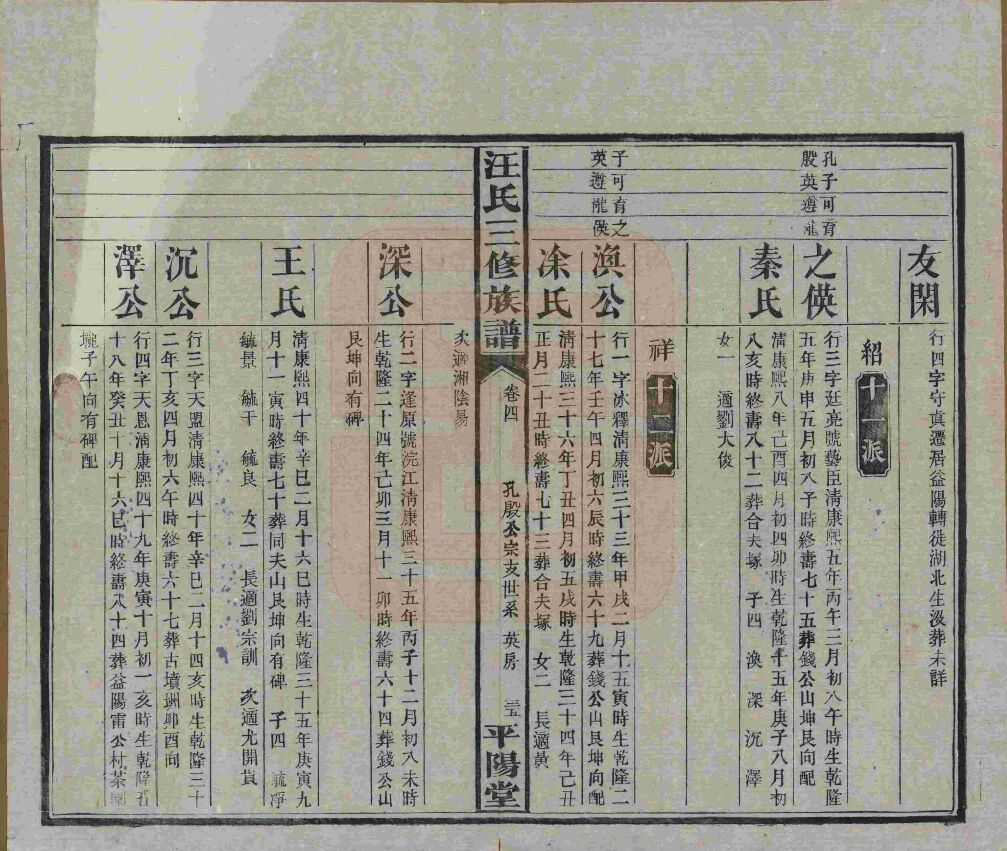 友閑
行四字守真遷居益陽轉徙湖北生汲葬未詳
紹 十一派
孔子可育
殷英遵龍
之偀
行三字廷亮號藝臣清康熙五年丙午三月初八午時生乾隆
五年庚申五月初八子時終壽七十五葬錢公山坤艮向配
秦氏
清康熙八年己酉四月初四卯時生乾隆十五年庚子八月初
八亥時終壽八十二葬合夫塚 子四 渙 深 沉 澤
女一 適劉大俊
祥 十二派
子可育之
英遵龍偀
渙公
行一字冰釋清康熙三十三年甲戌二月十五寅時生乾隆二
十七年壬午四月初六辰時終壽六十九葬錢公山艮坤向配
凃氏
清康熙三十六年丁丑四月初五戌時生乾隆三十四年己丑
正月二十丑時終壽七十三葬合夫塚 女二 長適黃
汪氏三修族譜
卷四
孔殷公宗友世系 英房
三五
平陽堂
次適湘陰易
深公
行二字逢原號浣江清康熙三十五年丙子十二月初八未時
生乾隆二十四年己卯三月十一卯時終壽六十四葬錢公山
艮坤向有碑
王氏
清康熙四十年辛巳二月十六巳時生乾隆三十五年庚寅九
月十一寅時終壽七十葬同夫山艮坤向有碑 子四 毓凈
毓景 毓干 毓良 女二 長適劉宗訓 次適尤開貰
沉公
行三字天盟清康熙四十年辛巳二月十四亥時生乾隆三十
二年丁亥四月初六午時終壽六十七葬古墳坳卯酉向
澤公
行四字天恩清康熙四十九年庚寅十月初一亥時生乾隆五
十八年癸丑十月十六巳時終壽八十四葬益陽雷公村茶園
壠子午向有碑配